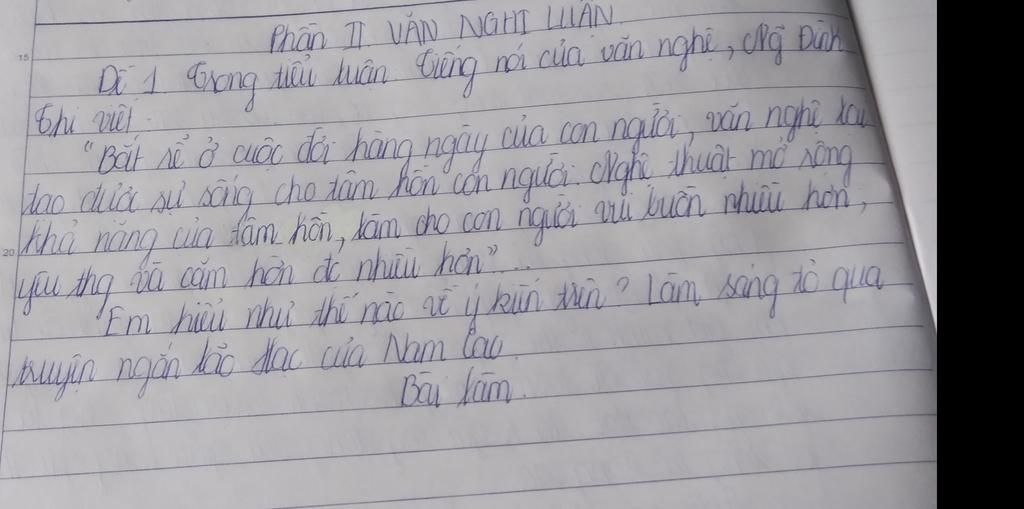 15
Phần II. VĂN NGHỊ LUẬN.
Đề 1 Trong tiểu luận Tiếng nói của văn nghệ, Ng Đình
Thi viết.
"Bắt rễ ở cuộc đời hàng ngày của con người, văn nghệ lại
tạo được sự sống cho tâm hồn con người. Nghệ thuật mở rộng
20 khả năng của tâm hồn, làm cho con người vui buồn nhiều hơn,
yêu thg và căm hờn đc nhiều hơn"...
Em hiểu như thế nào về ý kiến trên? Làm sáng tỏ qua
truyện ngắn Lão Hạc của Nam Cao.
Bài làm.